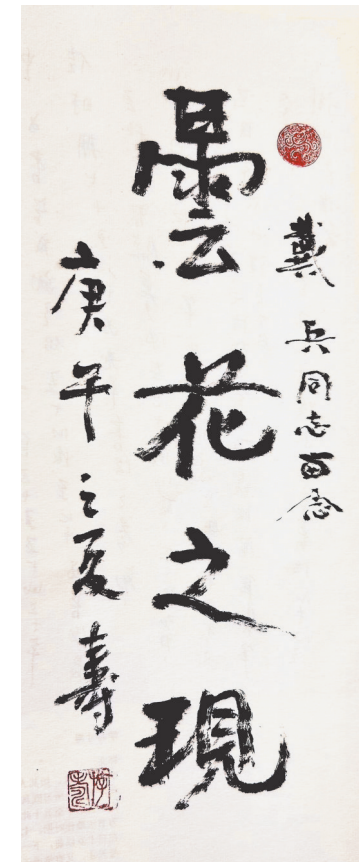 戴兵同志留念
曇花之現
庚午之夏 壽